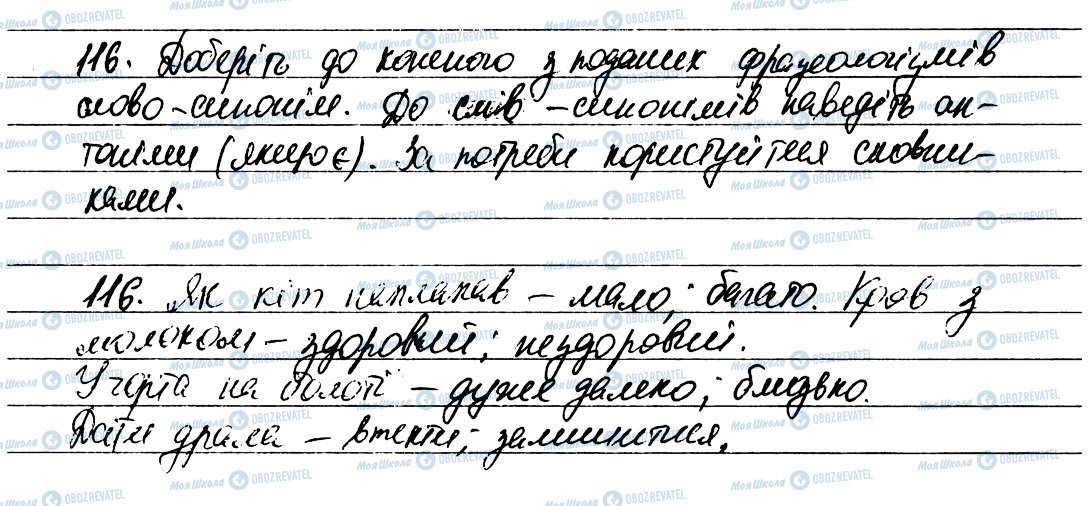 116. Доберіть до кожного з поданих фразеологізмів
слово-синонім. До слів-синонімів наведіть ан-
тоніми (якщо є). За потреби користуйтеся словни-
ками.
116. Як кіт наплакав – мало; багато. Кров з
молоком – здоровий; нездоровий.
У чорта на болоті – дуже далеко; близько.
Дати драла – втекти; залишитися.